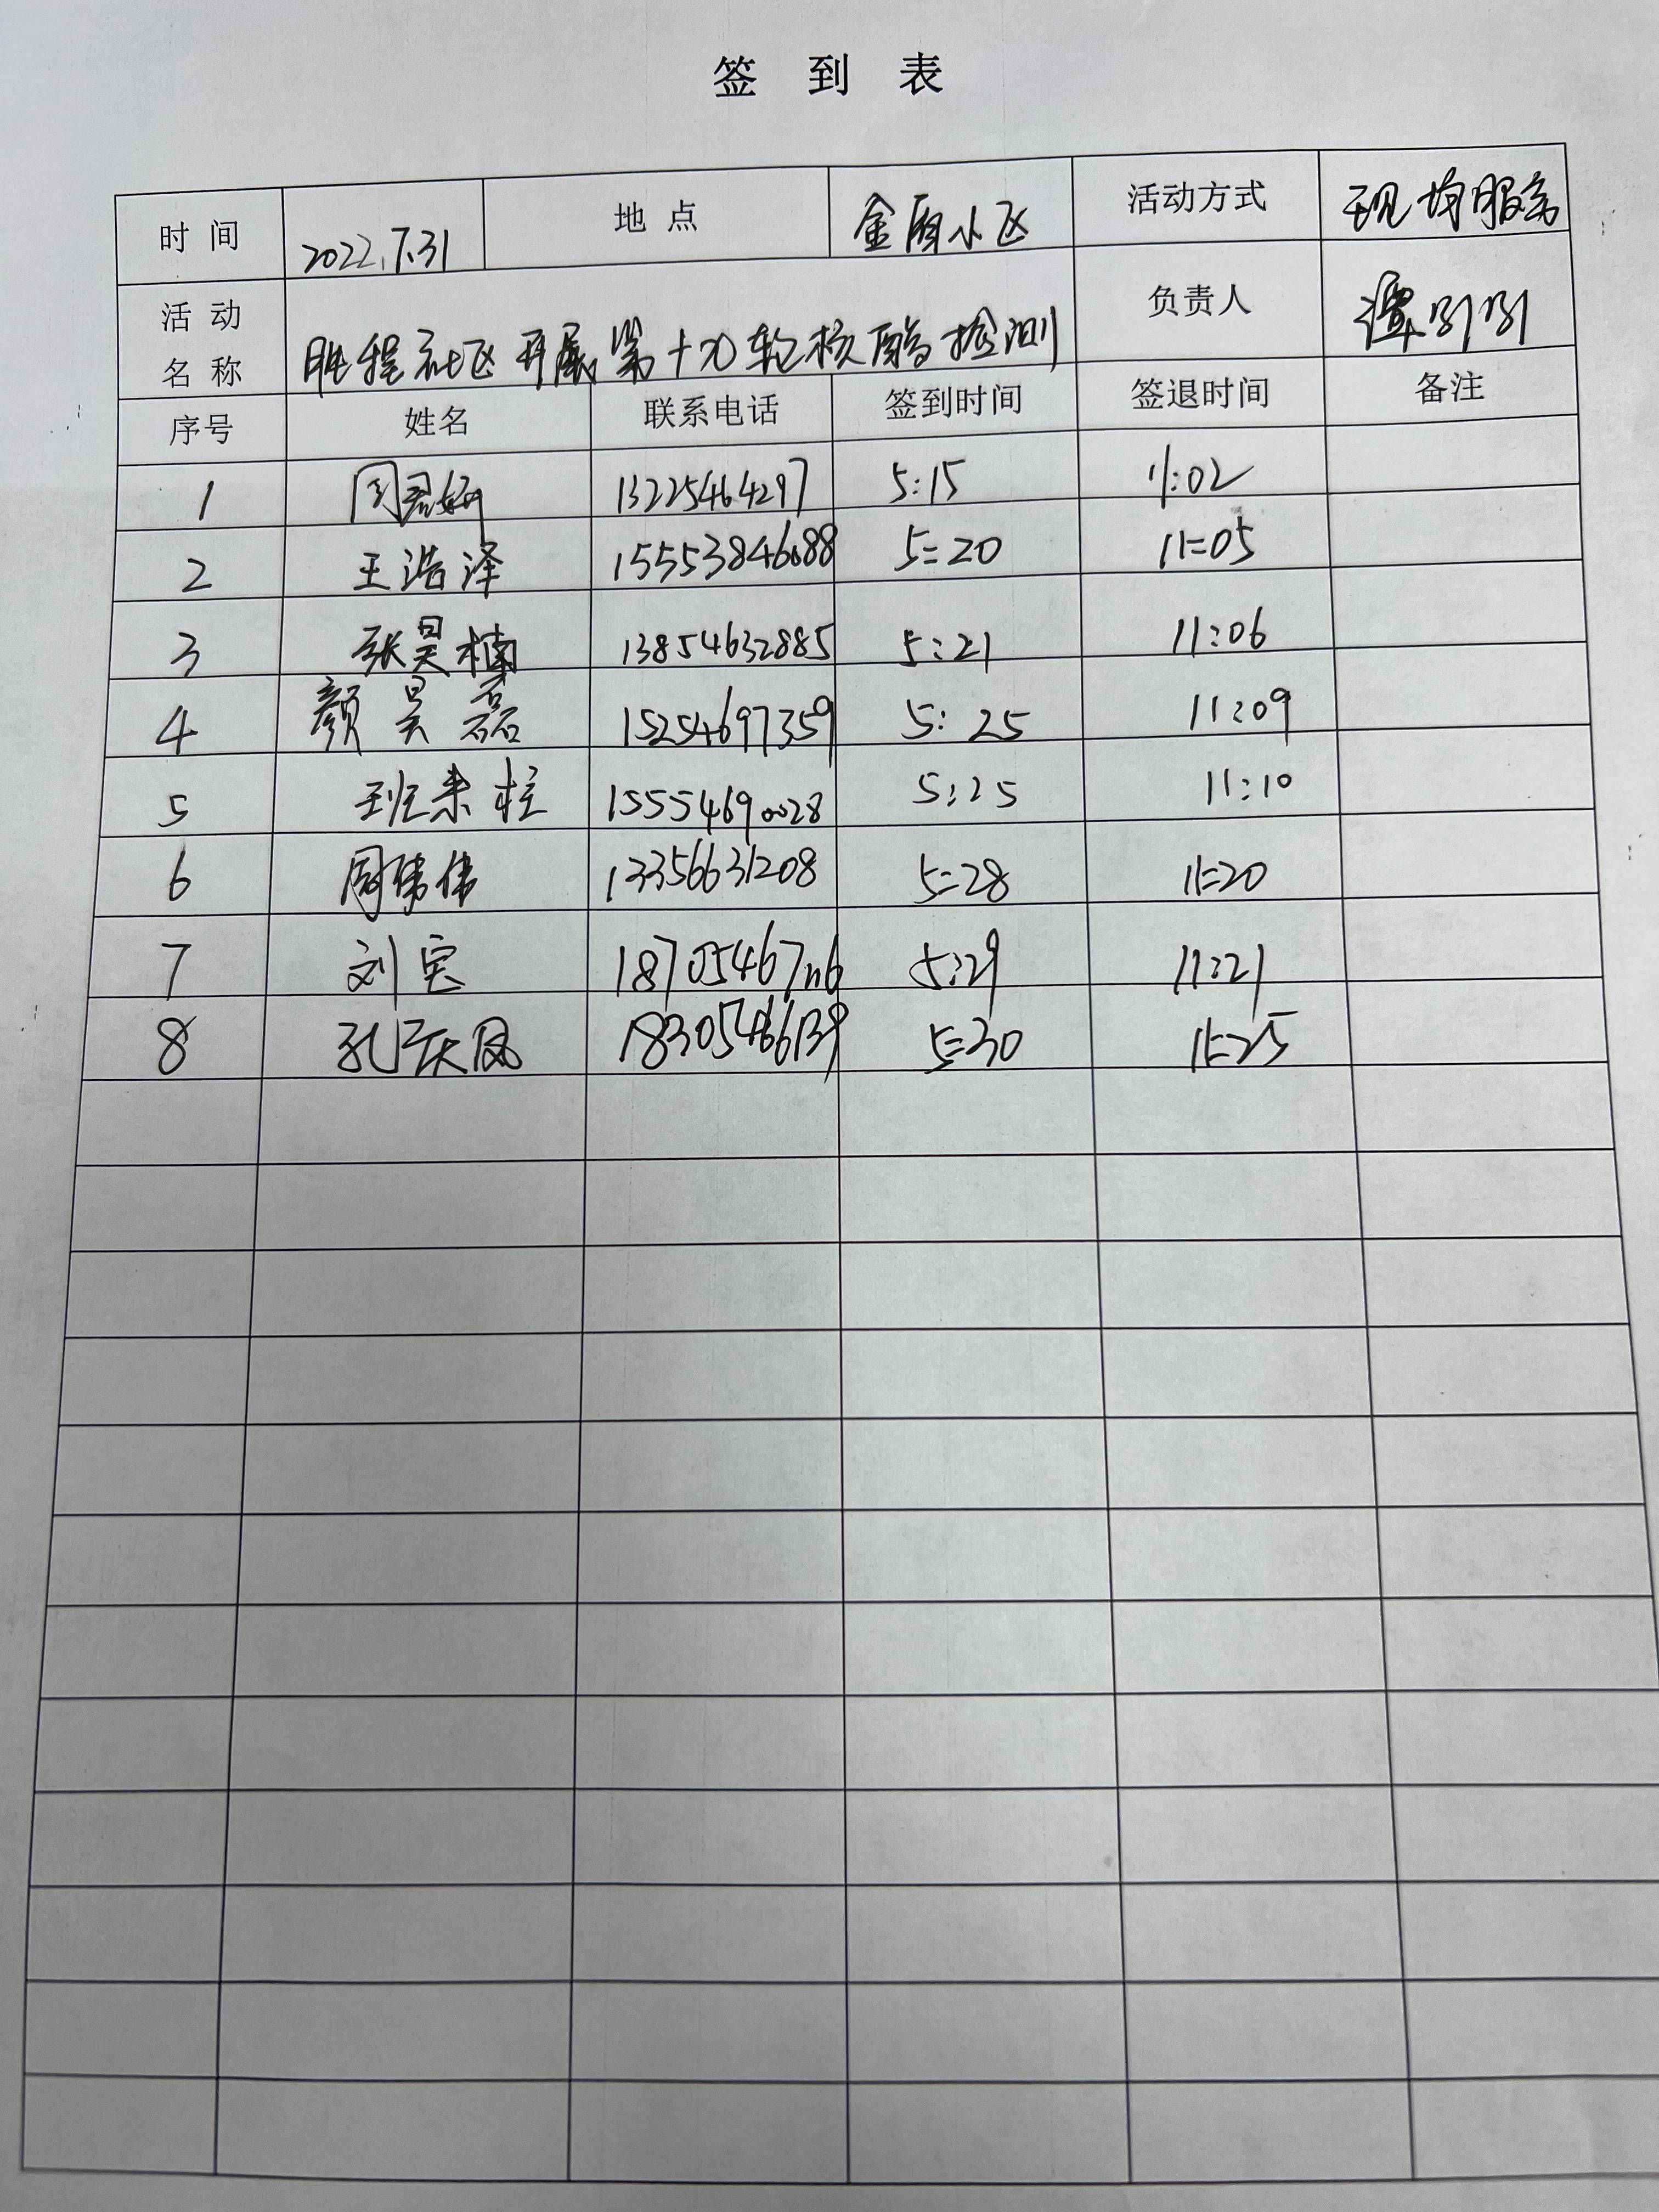 签 到 表
时 间 2022.7.31 地 点 金 小区 活动方式 现场服务
活 动 名 称 胜程社区开展第十九轮核酸检测 负责人 谭引引
序号 姓名 联系电话 签到时间 签退时间 备注
1 周君妍 13225464297 5:15 11:02
2 王浩泽 15553846088 5:20 11:05
3 张昊楠 13854632885 5:21 11:06
4 颜昊磊 15254697359 5:25 11:09
5 班来柱 15554690028 5:25 11:10
6 周伟伟 13356631208 5:28 11:20
7 刘宝 5:29 11:21
8 孔庆凤 18305466139 5:30 11:25